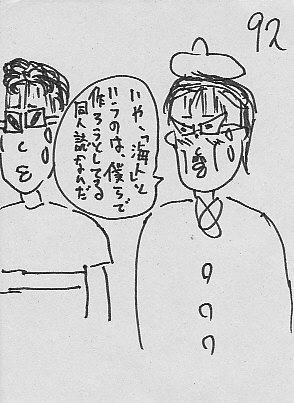 92
いや、「海人」と
いうのは、僕らで
作ろうとしてる
同人誌なんだ